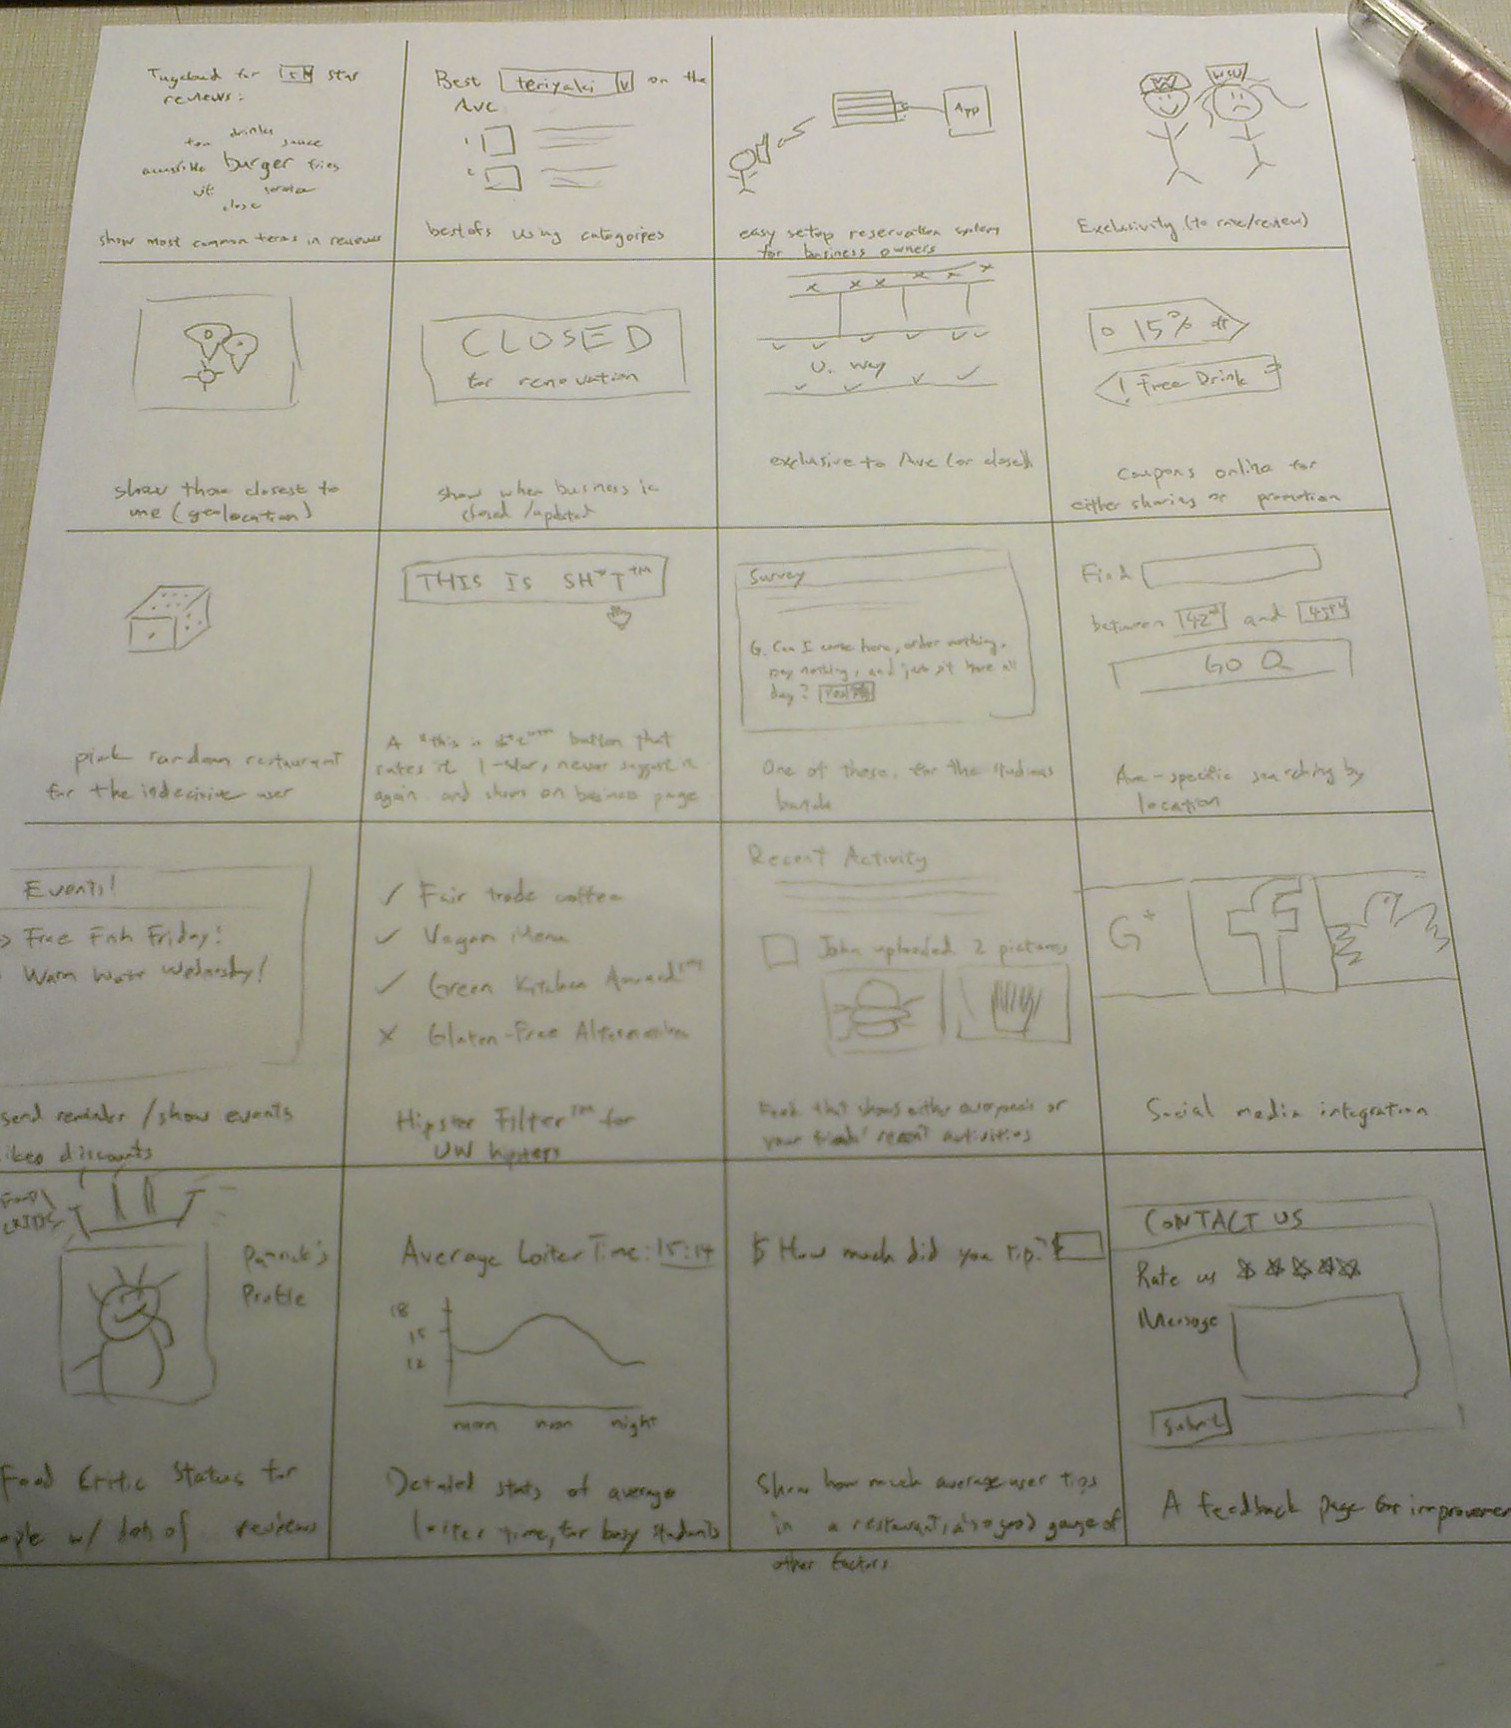 Tagcloud for
star
reviews:
drinks
sauce
accessible burger fries
close
show most common terms in reviews
Best teriyaki v on the
Ave
1
2
bestofs using categories
App
easy setup reservation system
for business owners
W
WSU
Exclusivity (to rate/review)
show those closest to
me (geolocation)
CLOSED
for renovation
show when business is
closed/updated
U. Way
exclusive to Ave (or close)
15% off
Free Drink
coupons online for
either sharing or promotion
pick random restaurant
for the indecisive user
THIS IS SH*T™
A "this is sh*t"™ button that
rates it 1-star, never suggest it
again and shows on business page
Survey
6. Can I come here, order nothing,
pay nothing, and just sit here all
day?
One of these, for the studious
bunch
Find
between 42nd and 45th
GO
Ave-specific searching by
location
Events!
Free Fish Friday!
Warm Water Wednesday!
send reminder/show events
likes discounts
✓ Fair trade coffee
✓ Vegan Menu
✓ Green Kitchen Award™
✗ Gluten-Free Alternatives
Hipster Filter™ for
UW hipsters
Recent Activity
John uploaded 2 pictures
Feed that shows either everyone's or
your friends' recent activities
G+
f
Social media integration
FOOD
CRITIC
Patrick's
Profile
Food Critic Status for
ople w/ lots of reviews
Average Loiter Time: 15:14
18
15
12
morn noon night
Detailed stats of average
loiter time, for busy students
$ How much did you tip?
Show how much average user tips
in a restaurant, also good gauge of
other factors
CONTACT US
Rate us
Message
submit
A feedback page for improvemen